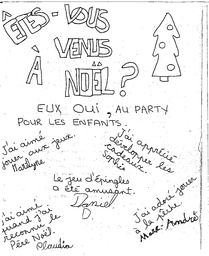 ÊTES-VOUS
VENUS
À NOËL ?
EUX OUI, AU PARTY
POUR LES ENFANTS.
J'ai aimé
jouer aux jeux.
Marilyne
J'ai apprécié
développer les
cadeaux.
Sophie
Le jeu d'épingles
a été amusant.
Daniel
D.
J'ai aimé
quand j'ai
reconnu le
Père Noël.
Claudia
J'ai adoré jouer
à la fête.
Marc-André